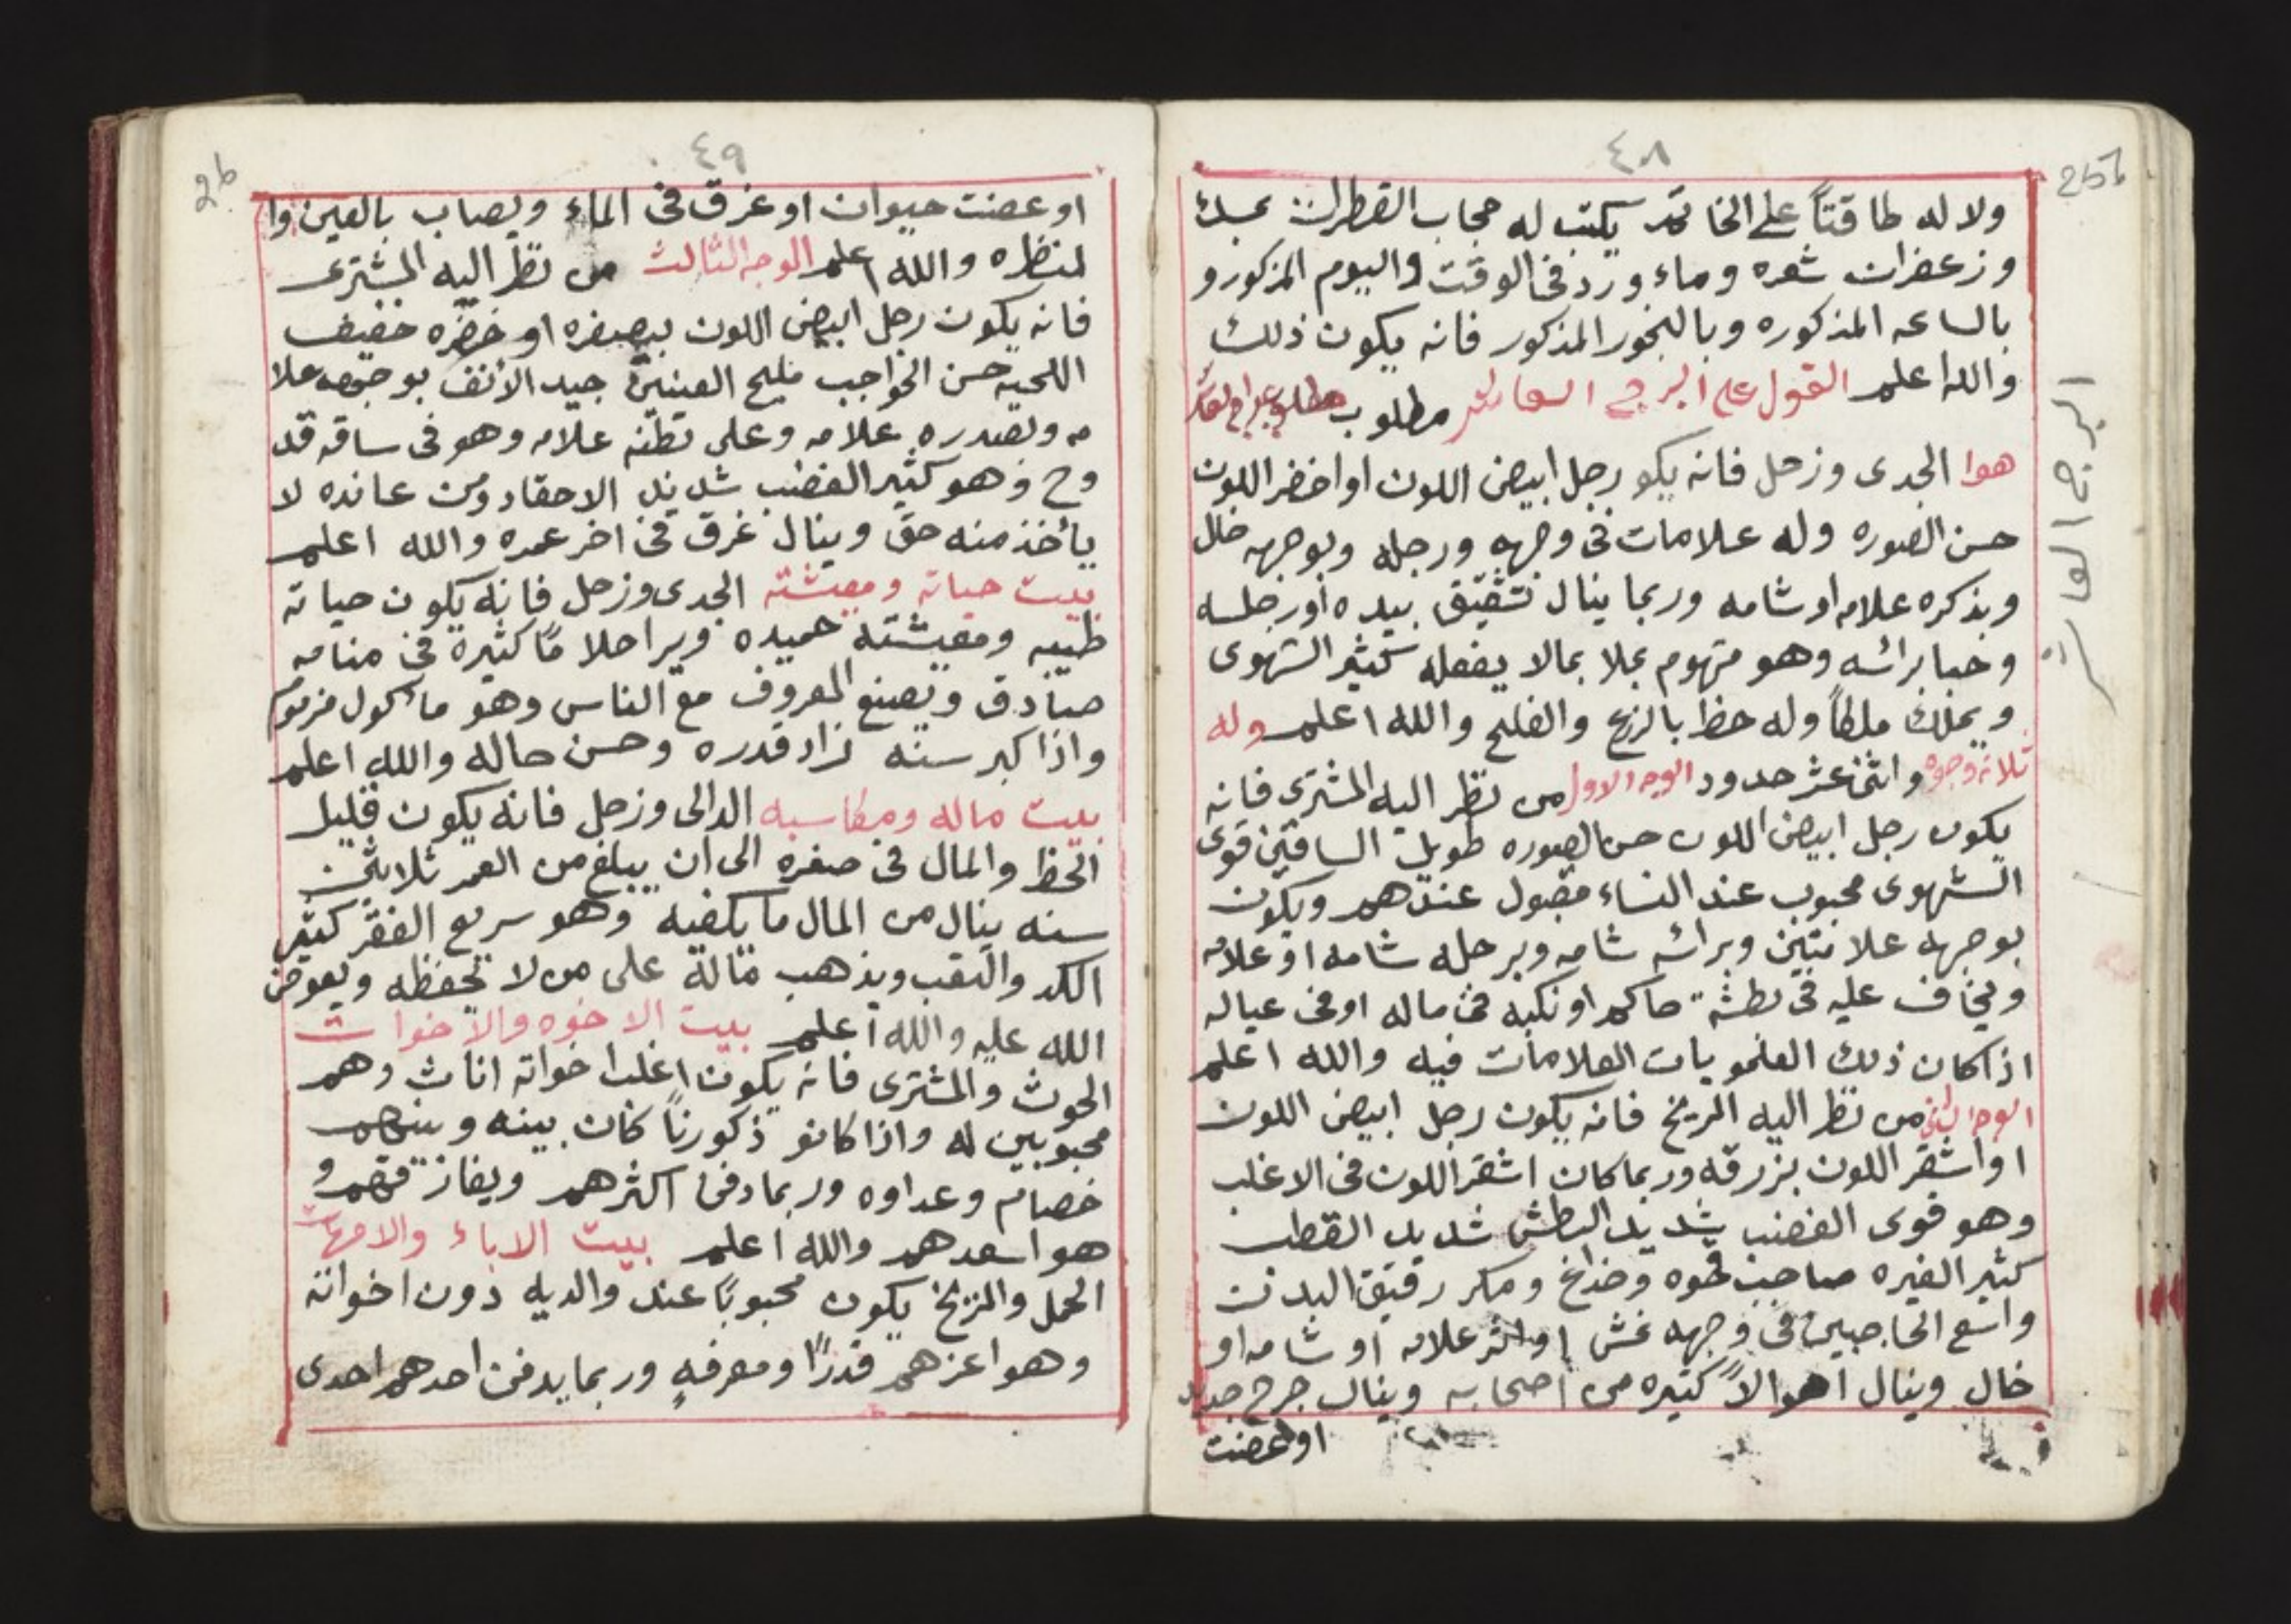 ٤٨
25b
ولا له طاقتاً على الخاتمه يكتب له حجاب القطران بمسك
وزعفران شعره وماء ورد فى الوقت واليوم المذكور و
بالساعه المذكوره وبالبخور المذكور فانه يكون ذلك
والله اعلم القول على البرج العاشر مطلوب
هوا الجدى وزحل فانه يكو رجل ابيض اللون او اخضر اللون
حسن الصوره وله علامات فى وجهه ورجله وبوجهه خال
وبذكره علامه او شامه وربما ينال تشقيق بيده او رجله
وخبا برائسه وهو متهوم بملا بمالا يفعله كثير الشهوى
ويملك ملكاً وله حظ بالزرع والفلح والله اعلم وله
ثلاثه وجوه واثنى عشر حدود الوجه الاول من نظر اليه المشترى فانه
يكون رجل ابيض اللون حسن الصوره طويل الساقين قوى
الشهوى محبوب عند النساء مقبول عندهم ويكون
بوجهه علامتين وبرائسه شامه وبرجله شامه او علامه
ويخاف عليه فى بطشة حاكم او نكبه فى ماله او فى عياله
اذا كان ذلك العلمو بات العلامات فيه والله اعلم
الوجه الثانى من نظر اليه المريخ فانه يكون رجل ابيض اللون
او اشقر اللون بزرقه وربما كان اشقر اللون فى الاغلب
وهو قوى الغضب شديد البطش شديد القطب
كثير الغيره صاحب قحوه وخداع ومكر رقيق البدن
واسع الحاجبين فى وجهه غش او اثر علامه او شامه او
خال وينال اهوالاً كثيره من اصحابه وينال جرح حديد
او عضت
البرج العاشر
٤٩
26
او عضت حيوان او غرق فى الماء ويصاب بالعين وا
لنظره والله اعلم الوجه الثالث من نظر اليه المشترى
فانه يكون رجل ابيض اللون بيصفره او خضره خفيف
اللحيه حسن الحواجب مليح العينين جيد الأنف بوجهه علا
مه وبصدره علامه وعلى بطنه علامه وهو فى ساقه قد
وح وهو كثير الغضب شديد الاحقاد ومن عانده لا
يأخذ منه حق وينال غرق فى اخر عمره والله اعلم
بيت حياته ومعيشته الجدى وزحل فانه يكون حياته
طيبه ومعيشته حميده ويرا احلاماً كثيرة فى منامه
صادق ويصنع المعروف مع الناس وهو مأكول مزموم
واذا كبر سنه زاد قدره وحسن حاله والله اعلم
بيت ماله ومكاسبه الدالى وزحل فانه يكون قليل
الحظ والمال فى صغره الى ان يبلغ من العمر ثلاثين
سنه ينال من المال ما يكفيه وهو سريع الفقر كثير
الكد والتعب ويذهب ماله على من لا يحفظه ويعوض
الله عليه والله أعلم بيت الاخوه والاخوات
الحوث والمشترى فانه يكون اغلب اخواته اناث وهم
محبوبين له واذا كانو ذكورناً كان بينه وبينهم
خصام وعداوه وربما دفن اكثرهم ويفازقهم و
هو اسعدهم والله أعلم بيت الاباء والامهات
الحمل والمريخ يكون محبوباً عند والديه دون اخواته
وهو اعزهم قدرًا ومعرفه وربما يدفن احدهم احدى